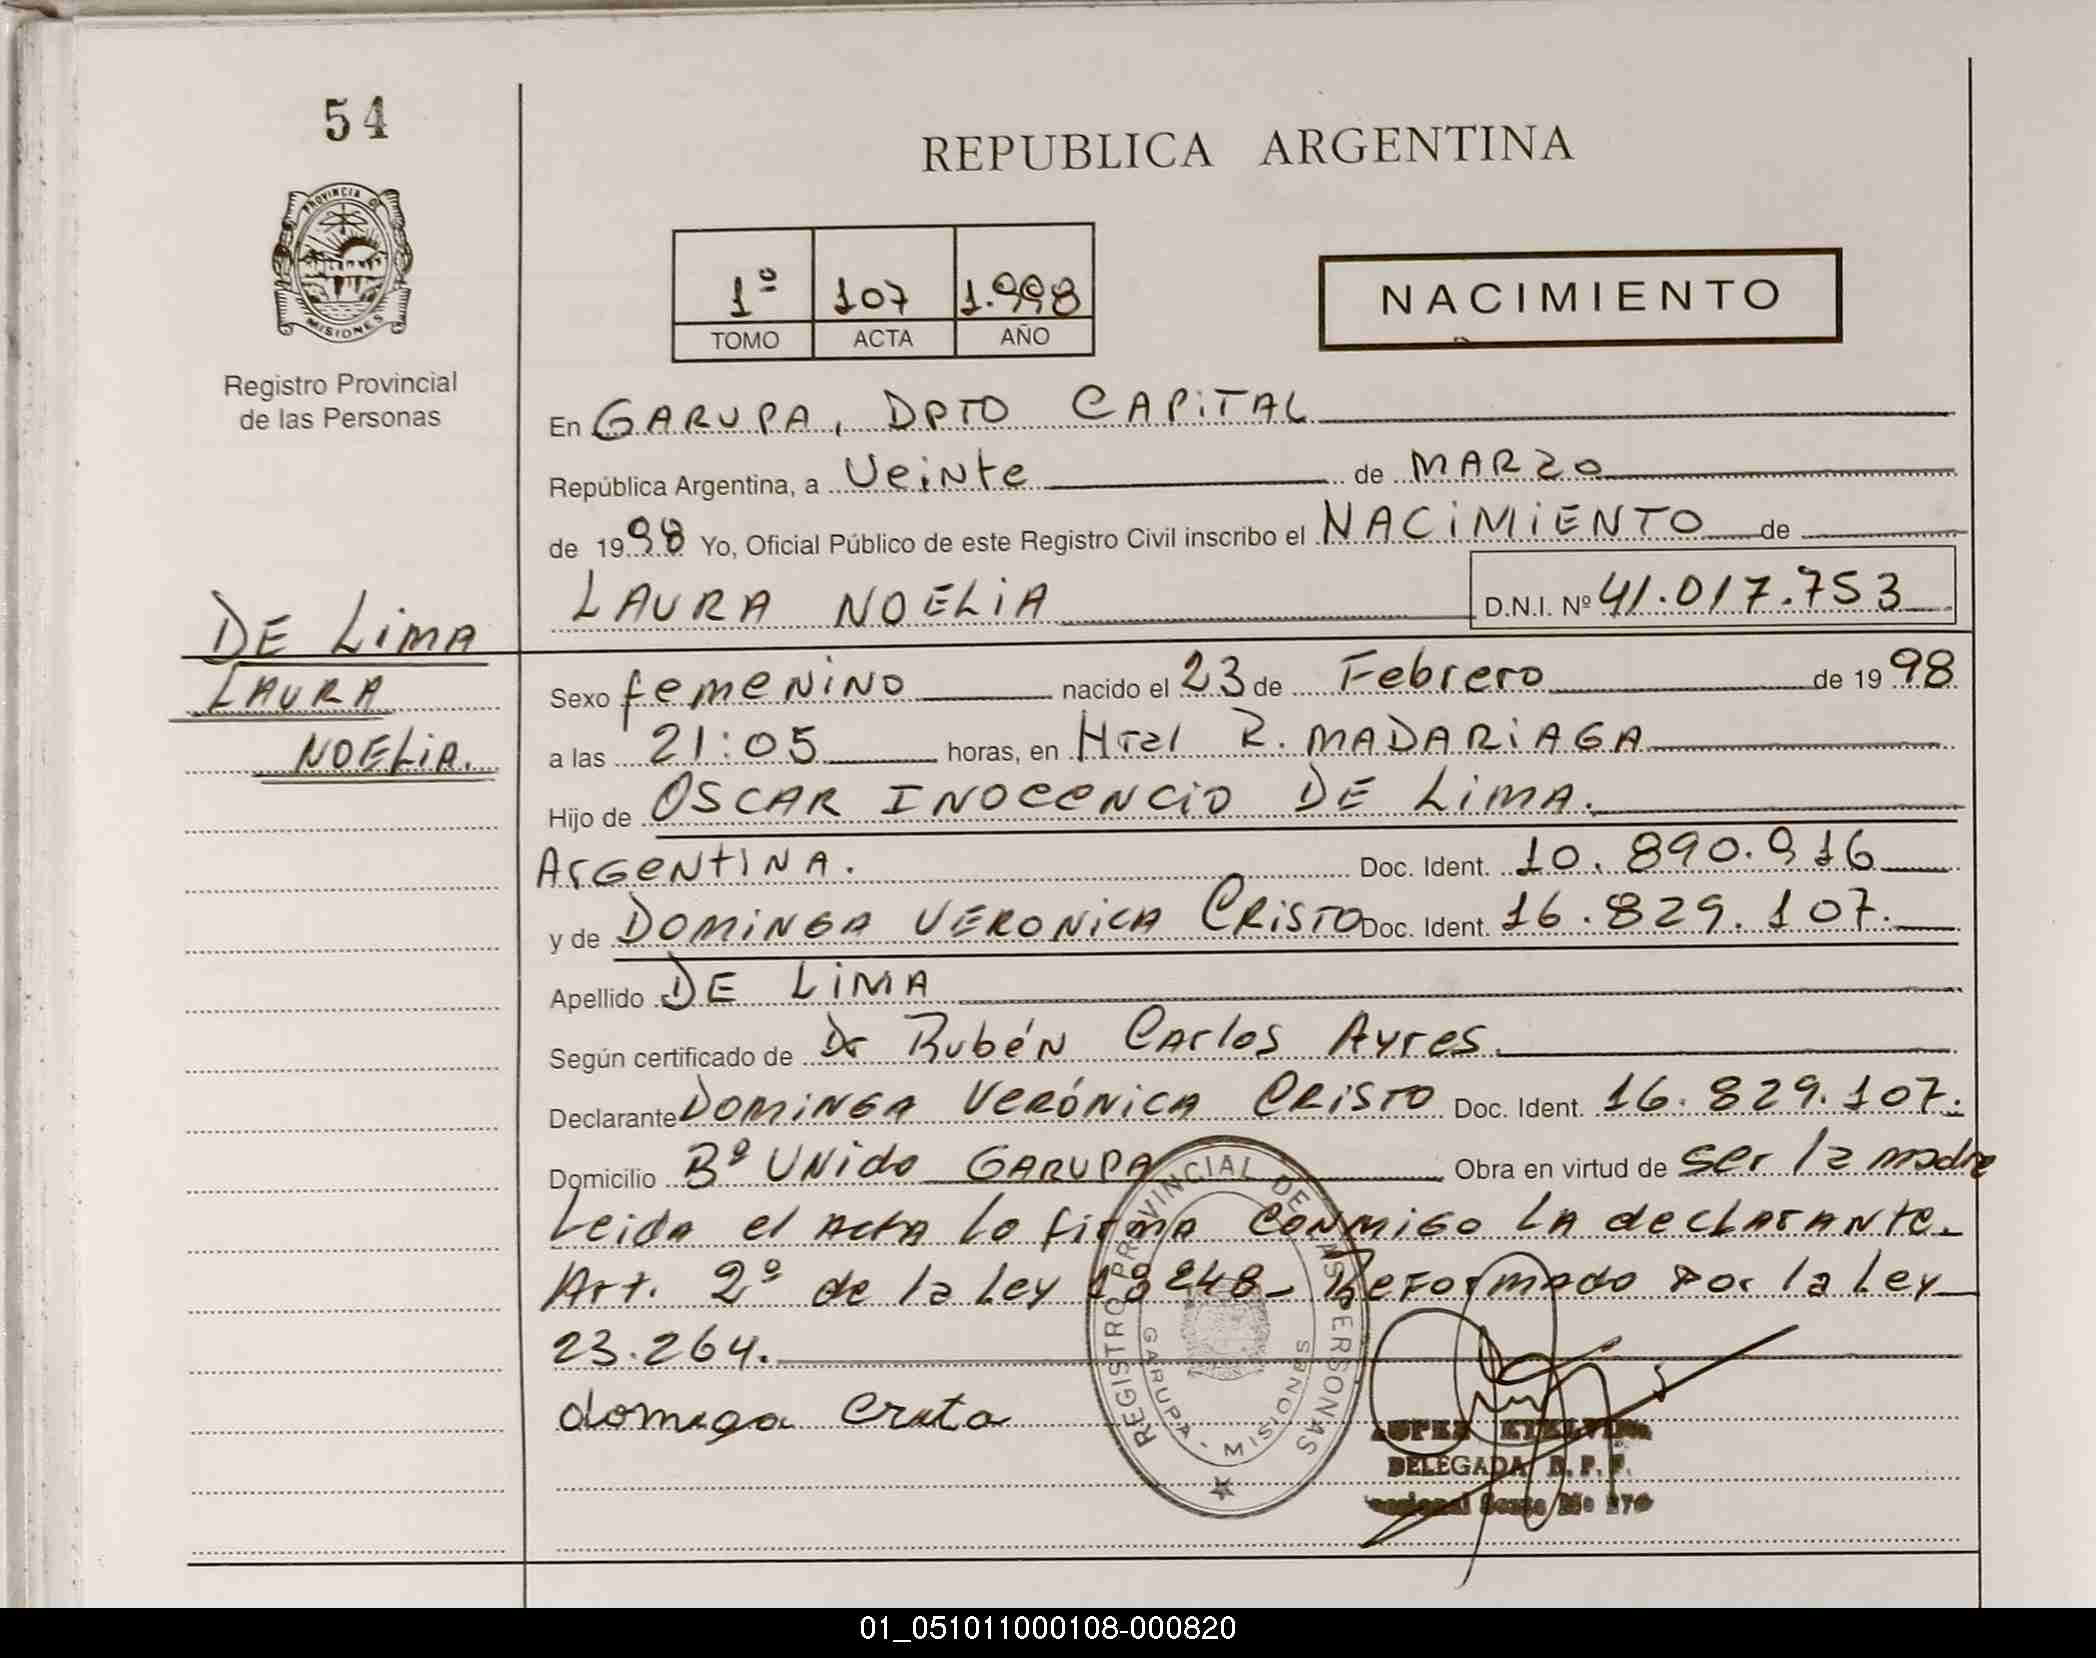 54
PROVINCIA D
MISIONES
Registro Provincial
de las Personas
DE LIMA
LAURA
NOELIA.
REPUBLICA ARGENTINA
1º 107 1.998
TOMO ACTA AÑO
NACIMIENTO
En GARUPA, DPTO CAPITAL
República Argentina, a Veinte de MARZO
de 1998 Yo, Oficial Público de este Registro Civil inscribo el NACIMIENTO de
LAURA NOELIA D.N.I. Nº 41.017.753
Sexo femenino nacido el 23 de Febrero de 1998
a las 21:05 horas, en Htal R. MADARIAGA
Hijo de OSCAR INOCENCIO DE LIMA.
ARGENTINA. Doc. Ident. 10.890.916
y de DOMINGA VERONICA CRISTO Doc. Ident. 16.829.107.
Apellido DE LIMA
Según certificado de Dr Rubén Carlos Ayres.
Declarante DOMINGA VERÓNICA CRISTO Doc. Ident. 16.829.107.
Domicilio Bº UNIDO GARUPA Obra en virtud de ser la madre
Leida el acta lo firma conmigo la declarante.
Art. 2º de la Ley 18248- Reformado por la Ley
23.264.
REGISTRO PROVINCIAL DE LAS PERSONAS
GARUPA - MISIONES
DELEGADA
01_051011000108-000820